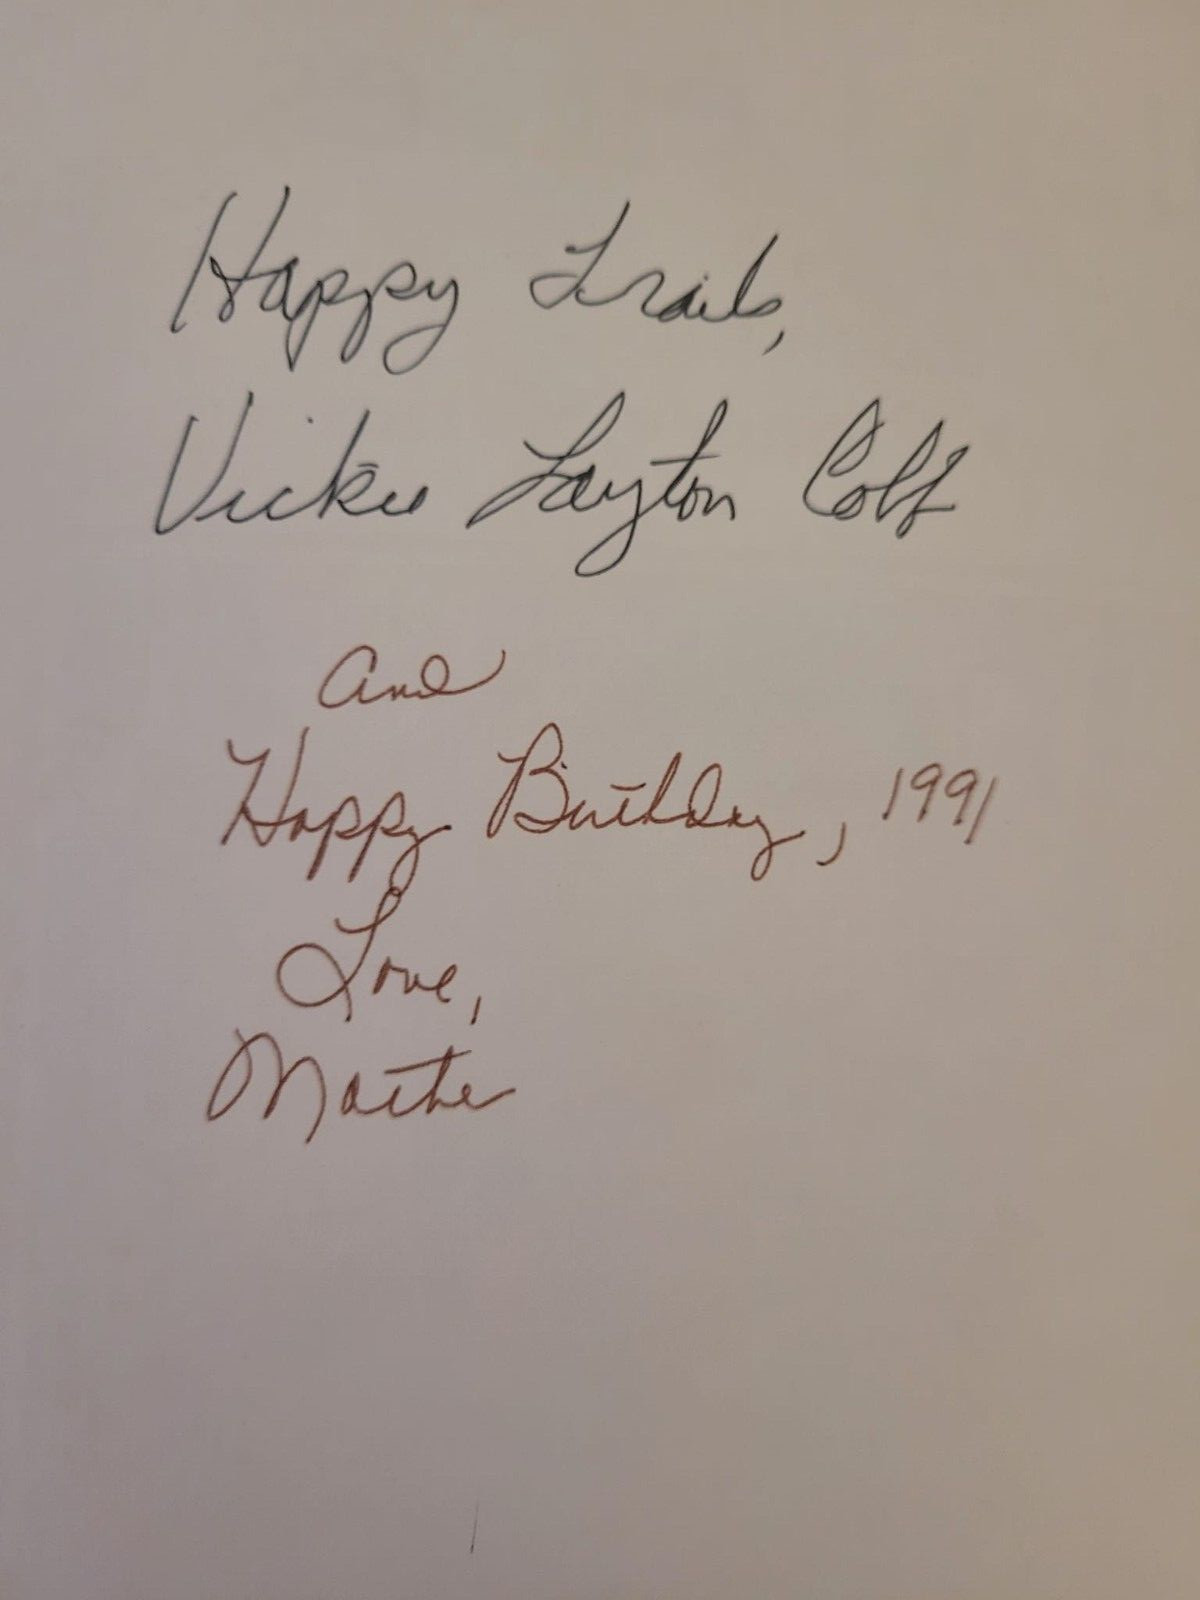 Happy Trails,
Vickie Layton Cobb
and
Happy Birthday, 1991
Love,